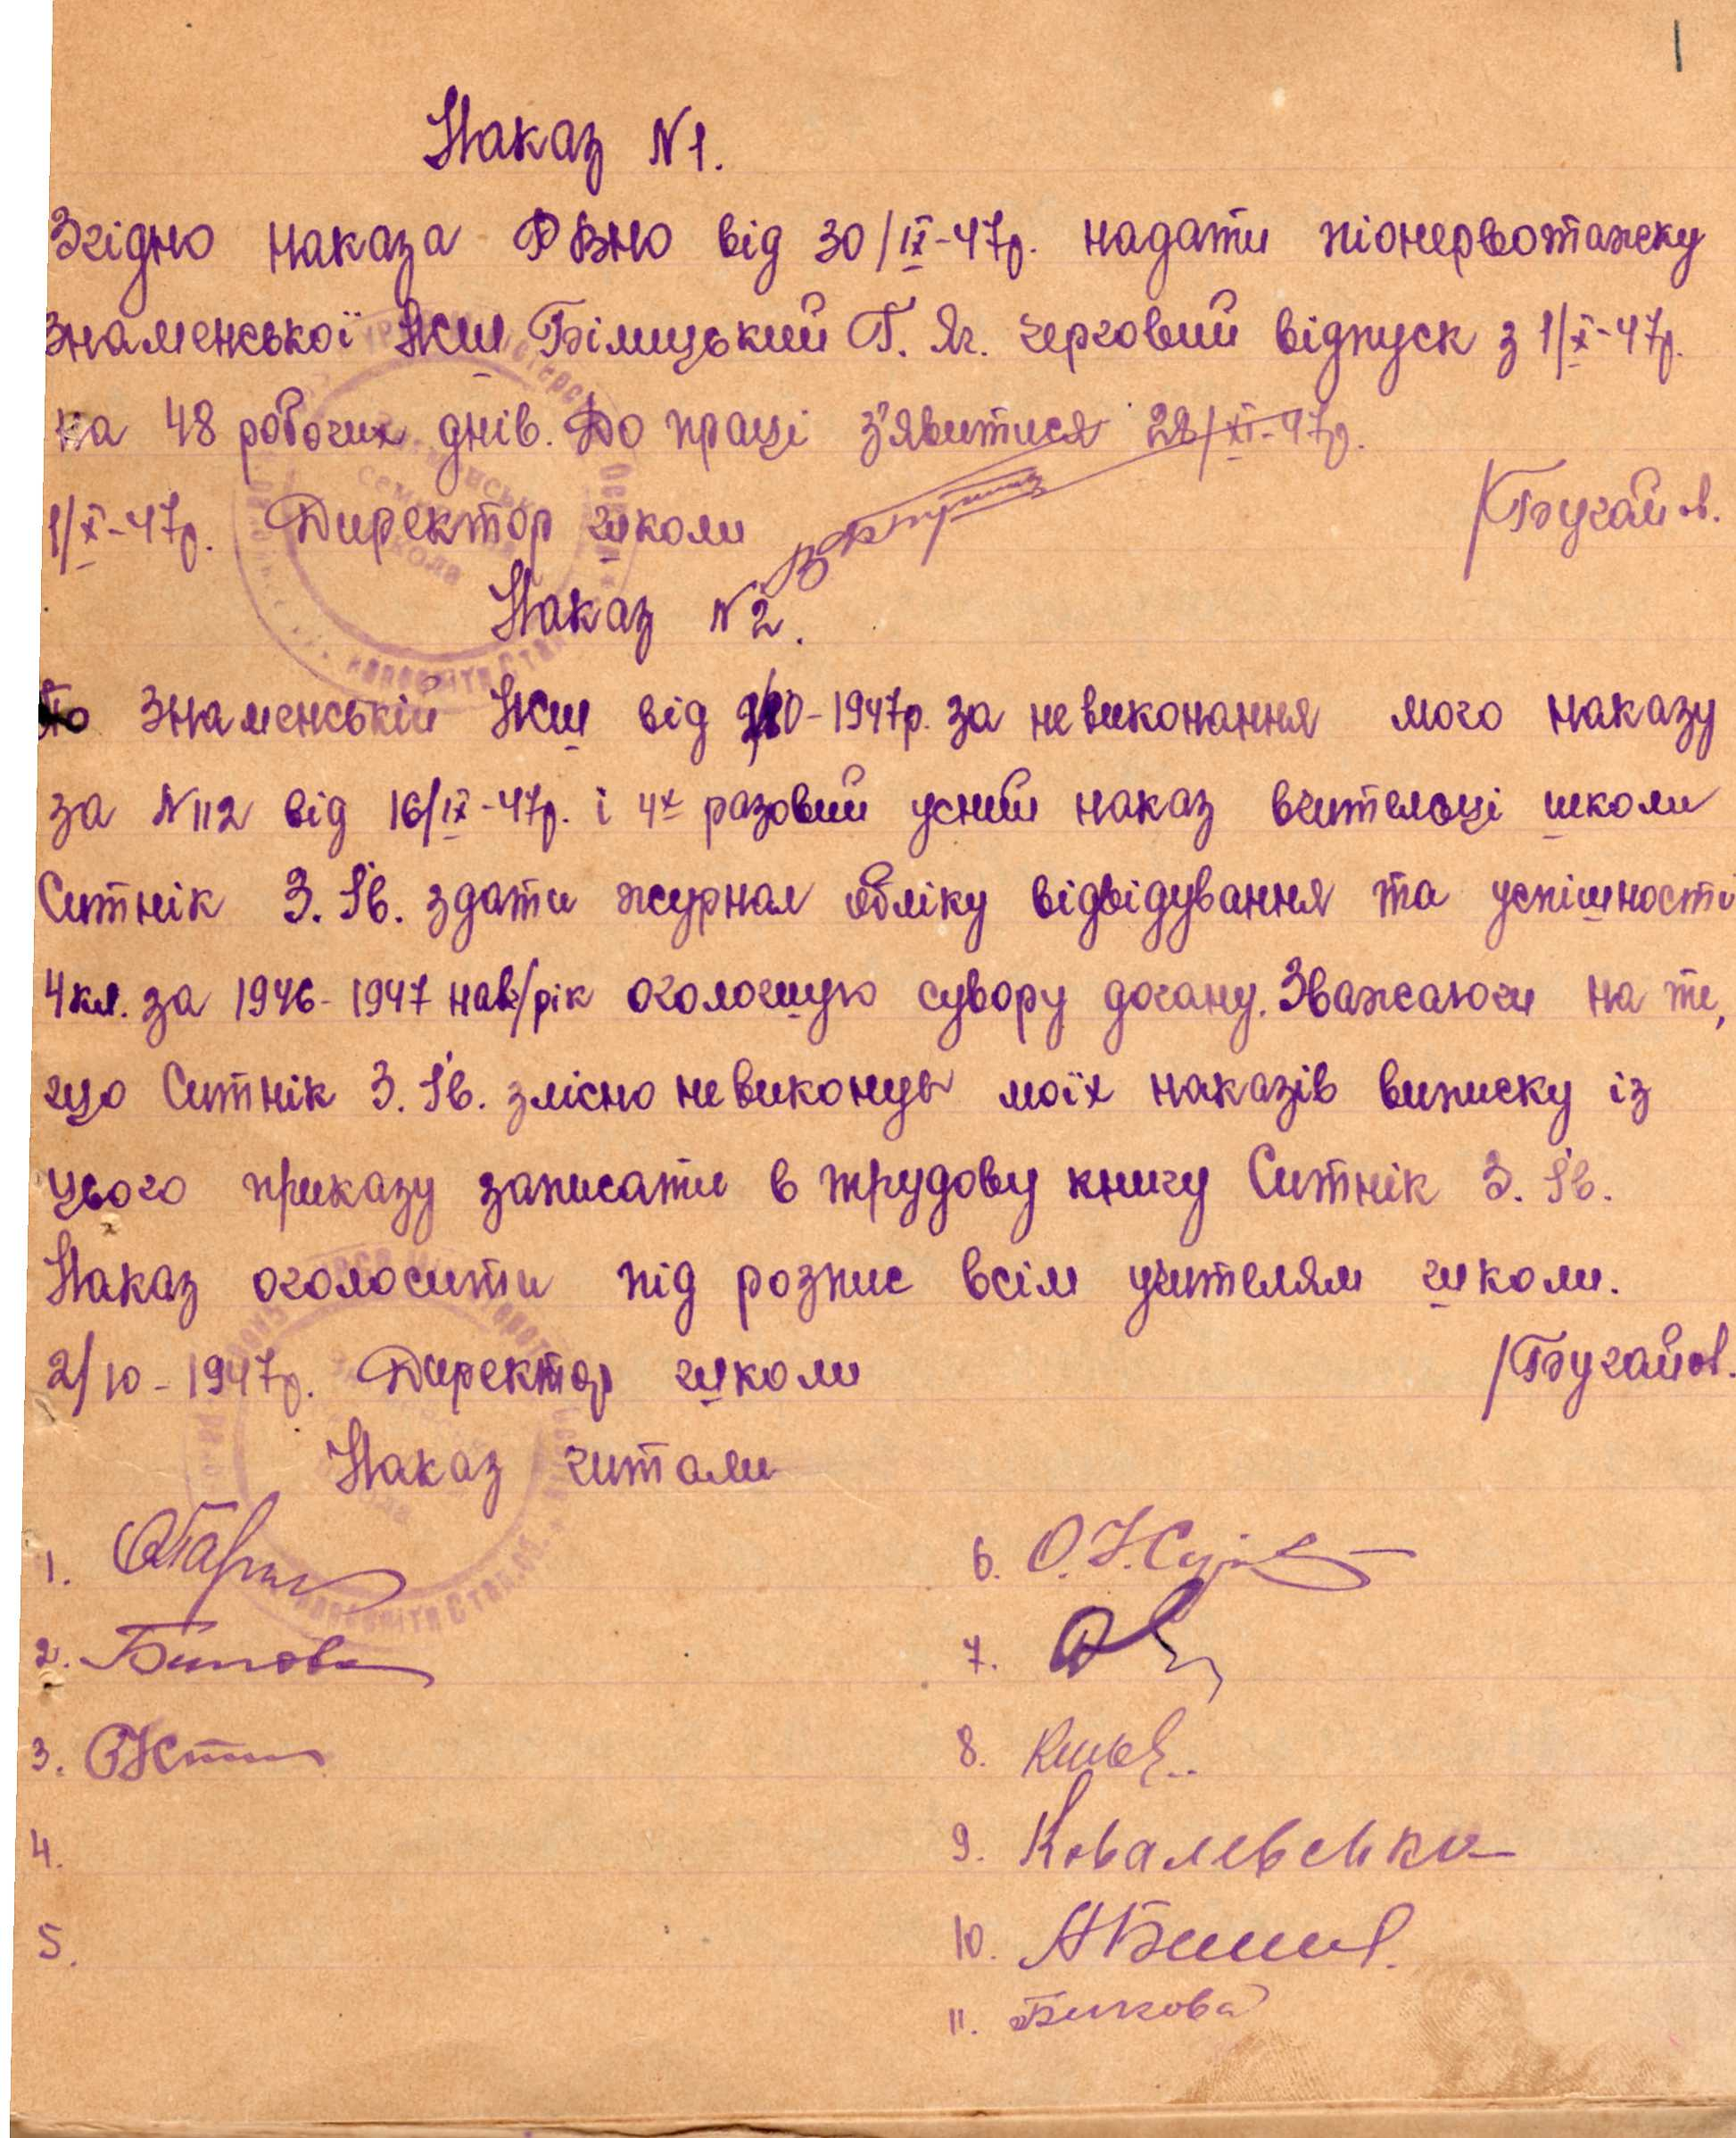 1
Наказ №1.
Згідно наказа РВНО від 30/IX-47р. надати піонервотажку
Знаменської НСШ Білицький Г. Як. черговий відпуск з 1/X-47р.
на 48 робочих днів. До праці з'явитися 28/XI-47р.
1/X-47р. Директор школи /Бугайов.
Наказ №2.
По Знаменській НСШ від 2/10-1947р. за невиконання мого наказу
за №112 від 16/IX-47р. і 4х разовий усний наказ вчительці школи
Ситнік З. Ів. здати журнал обліку відвідування та успішності
4кл. за 1946-1947 навч/рік оголошую сувору догану. Зважаючи на те,
що Ситнік З. Ів. злісно невиконує моїх наказів виписку із
цього приказу записати в трудову книгу Ситнік З. Ів.
Наказ оголосити під розпис всім учителям школи.
2/10-1947р. Директор школи /Бугайов.
Наказ читали
1.
2.
3.
4.
5.
6.
7.
8.
9. Ковалевська
10.
11. Бикова